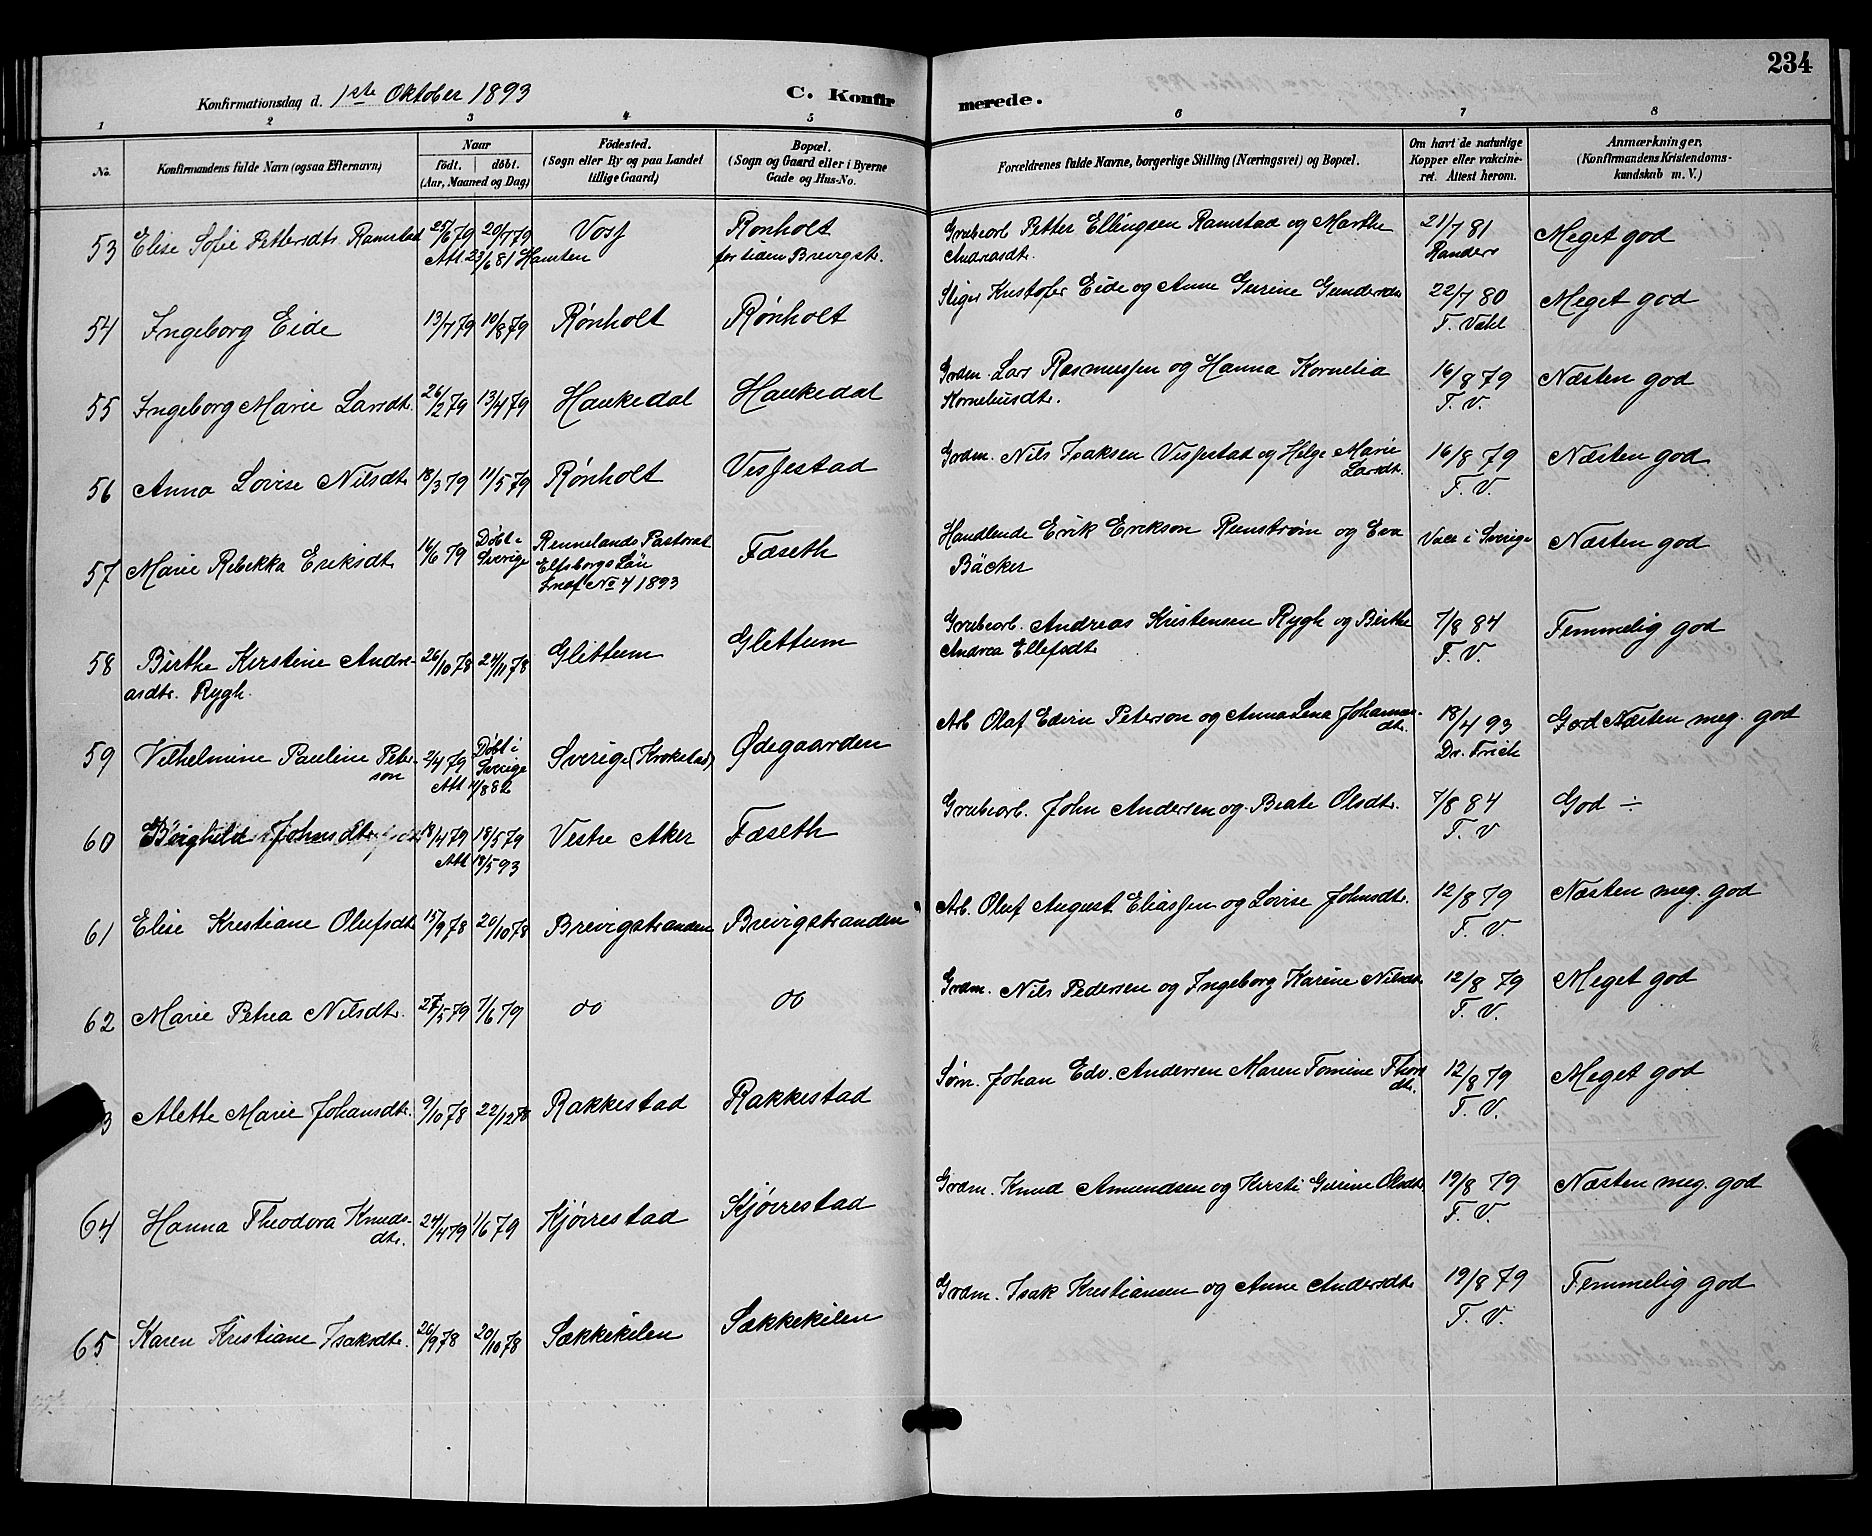 234
Konfirmationsdag d. 1ste Oktober 1893 C. Konfir merede.
1 2 3 4 5 6 7 8
No. Konfirmandens fulde Navn (ogsaa Efternavn) Naar født. døbt. (Aar, Maaned og Dag) Födested. (Sogn eller By og paa Landet tillige Gaard) Bopæl. (Sogn og Gaard eller i Byerne Gade og Hus-No. Forældrenes fulde Navne, borgerlige Stilling (Næringsvei) og Bopæl. Om havt de naturlige Kopper eller vakcineret. Attest herom. Anmærkninger, (Konfirmandens Kristendomskundskab m. V.)
53 Elise Sofie Pettersdtr. Ramstad 25/6 79 20/7 79 Voss Rønholt Grubearb. Petter Ellingsen Ramstad og Marthe 21/7 81 Meget god
Att 23/6 81 for tiden Brevigstr. Andreasdt. Randers
54 Ingeborg Eide 13/7 79 10/8 79 Rønholt Rønholt Stiger Kristofer Eide og Anne Gurine Gundersdtr 22/7 80 Meget god
T. Vahl
55 Ingeborg Marie Larsdt. 26/2 79 13/4 79 Haukedal Haukedal Grdm. Lars Rasmussen og Hanna Kornelia 16/8 79 Næsten god
Korneliusdt. T. V.
56 Anna Lovise Nilsdt. 18/3 79 11/5 79 Rønholt Vessestad Grdm. Nils Isaksen Vissestad og Helge Marie 16/8 79 Næsten god
Larsdt. T. V.
57 Marie Rebekka Eriksdt. 16/6 79 Døbt i Sverige Rennelands Pastorat Fæseth Handlende Erik Erikson Runström og Eva Vacc i Sverige Næsten god
Elfsborgs Län Bäcker
No 7 1893
58 Birthe Kirstine Andre- 26/10 78 24/11 78 Glittum Glittum Grubearb. Andreas Kristensen Rygh og Birthe 7/8 84 Temmelig god
asdtr. Rygh. Andrea Ellefsdt T. V.
59 Vilhelmine Pauline Peter- 2/4 79 Døbt i Sverige Sverige (Krokstad) Ødegaarden Arb Olaf Edvin Peterson og Anna Lena Johannes- 18/4 93 God Næsten meg. god
son Att 11/8 82 dtr. Dr. Frich
60 Borghild Johnsdtr. 18/4 79 18/5 79 Vestre Aker Fæseth Grubearb. John Andersen og Beate Olsdt. 7/8 84 God ÷
Att 18/5 93 T. V
61 Elise Kristiane Olufsdt 15/9 78 20/10 78 Brevigstranden Brevigstranden Arb. Oluf August Eliassen og Lovise Johnsdt. 12/8 79 Næsten meg. god
T. V.
62 Marie Petrea Nilsdt. 27/5 79 7/6 79 oo oo Grdm. Nils Pedersen og Ingeborg Karine Nilsdt 12/8 79 Meget god
T. V.
3 Alette Marie Johansdt. 9/10 78 22/12 78 Rakkestad Rakkestad Søm. Johan Edv. Andersen Maren Tomine Thors 12/8 79 Meget god
dt. T. V.
64 Hanna Theodora Knuds- 24/4 79 1/6 79 Kjørrestad Kjørrestad Grdm. Knud Amundsen og Kirsti Gurine Olsdt. 19/8 79 Næsten meg. god
dtr. T. V.
65 Karen Kristiane Isaksdt. 26/9 78 20/10 78 Sækkekilen Sækkekilen Grdm. Isak Kristiansen og Anne Andersdt. 19/8 79 Temmelig god
T. V.